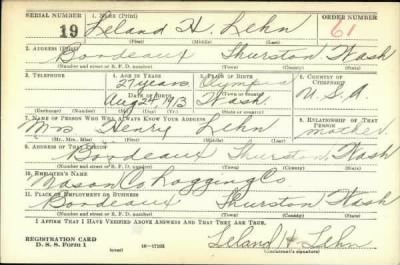 SERIAL NUMBER 1. NAME (Print) ORDER NUMBER
19 Leland H. Lehn 61
(First) (Middle) (Last)
2. ADDRESS (Print)
Bordeaux Thurston Wash
(Number and street or R. F. D. number) (Town) (County) (State)
3. TELEPHONE 4. AGE IN YEARS 5. PLACE OF BIRTH 6. COUNTRY OF CITIZENSHIP
27 years Olympia
DATE OF BIRTH (Town or county) U.S.A.
Aug 24, 1913 Wash.
(Exchange) (Number) (Mo.) (Day) (Yr.) (State or country)
7. NAME OF PERSON WHO WILL ALWAYS KNOW YOUR ADDRESS 8. RELATIONSHIP OF THAT PERSON
Mrs Henry Lehn mother
(Mr., Mrs., Miss) (First) (Middle) (Last)
9. ADDRESS OF THAT PERSON
Bordeaux Thurston Wash
(Number and street or R. F. D. number) (Town) (County) (State)
10. EMPLOYER'S NAME
Mason Co Logging Co
11. PLACE OF EMPLOYMENT OR BUSINESS
Bordeaux Thurston Wash
(Number and street or R. F. D. number) (Town) (County) (State)
I AFFIRM THAT I HAVE VERIFIED ABOVE ANSWERS AND THAT THEY ARE TRUE.
REGISTRATION CARD Leland H Lehn
D. S. S. FORM 1 (over) 16-17105 (Registrant's signature)